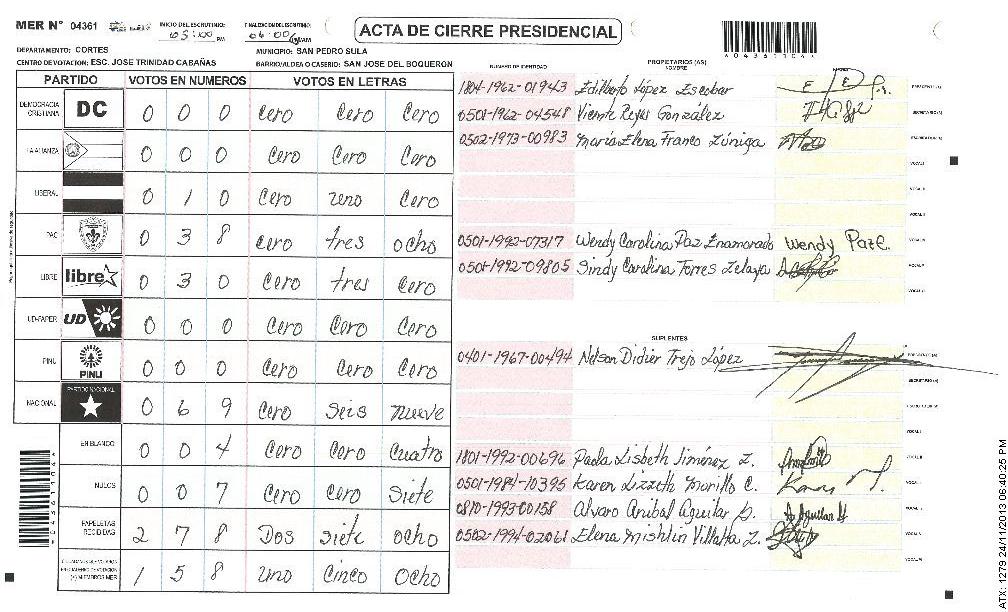 MER N° 04361
INICIO DEL ESCRUTINIO: 05:00 PM
FINALIZACION DEL ESCRUTINIO: 06:00 AM
ACTA DE CIERRE PRESIDENCIAL
*04361104*
DEPARTAMENTO: CORTES
MUNICIPIO: SAN PEDRO SULA
CENTRO DE VOTACION: ESC. JOSE TRINIDAD CABAÑAS
BARRIO/ALDEA O CASERIO: SAN JOSE DEL BOQUERON
PARTIDO VOTOS EN NUMEROS VOTOS EN LETRAS
DEMOCRACIA CRISTIANA DC 0 0 0 Cero Cero Cero
LA ALIANZA 0 0 0 Cero Cero Cero
LIBERAL 0 1 0 Cero uno Cero
PAC 0 3 8 Cero tres ocho
LIBRE libre 0 3 0 Cero tres Cero
UD-FAPER UD 0 0 0 Cero Cero Cero
PINU PINU 0 0 0 Cero Cero Cero
NACIONAL PARTIDO NACIONAL 0 6 9 Cero Seis nueve
EN BLANCO 0 0 4 Cero Cero Cuatro
NULOS 0 0 7 Cero Cero Siete
PAPELETAS RECIBIDAS 2 7 8 Dos siete ocho
1 5 8 uno Cinco Ocho
NUMERO DE IDENTIDAD
PROPIETARIOS (AS)
NOMBRE
FIRMA
1804-1962-01943 Edilberto López Escobar PRESIDENTE (A)
0501-1962-04548 Vicente Reyes González SECRETARIO (A)
0502-1973-00983 María Elena Franco Zúniga ESCRUTADOR (A)
VOCAL I
VOCAL II
VOCAL III
0501-1992-07317 Wendy Carolina Paz Enamorado Wendy Paz E. VOCAL IV
0501-1992-09805 Sindy Carolina Torres Zelaya VOCAL V
VOCAL VI
SUPLENTES
0401-1967-00494 Nelson Didier Trejo López PRESIDENTE (A)
SECRETARIO (A)
ESCRUTADOR (A)
VOCAL I
1801-1992-00696 Paola Lisbeth Jiménez Z. VOCAL II
0501-1984-10395 Karen Lizzeth Murillo C.
0810-1993-00158 Alvaro Anibal Aguilar S.
0502-1994-02061 Elena Mishlin Villalta Z.
VOCAL VI
*04361104*
ATX: 1279 24/11/2013 06:40:25 PM